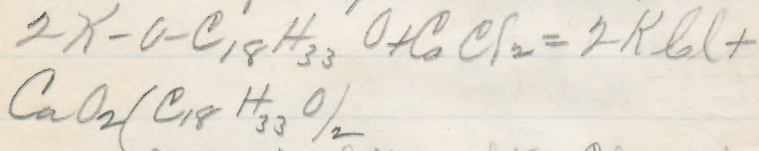 2K-O-C₁₈H₃₃O+CaCl₂=2KCl+
CaO₂(C₁₈H₃₃O)₂